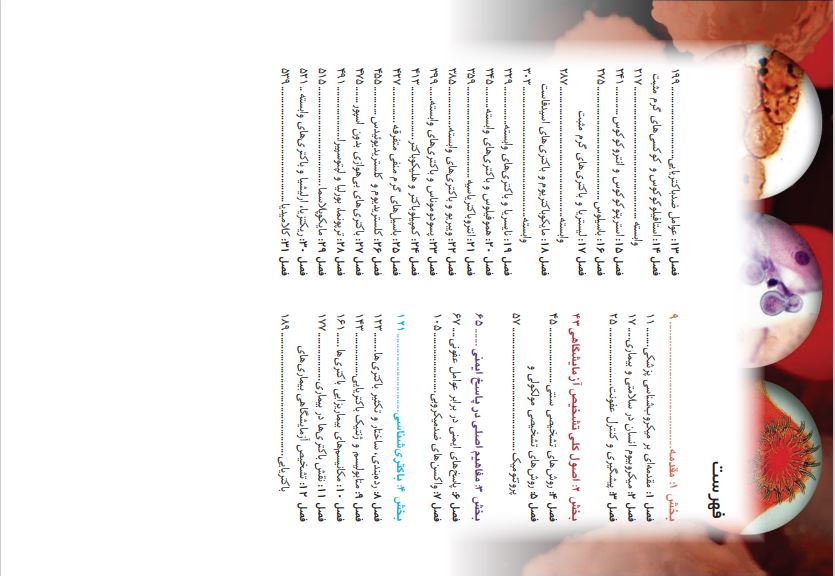 فهرست
بخش ۱: مقدمه ۹
فصل ۱: مقدمه‌ای بر میکروب‌شناسی پزشکی ۱۱
فصل ۲: میکروبیوم انسان در سلامتی و بیماری ۱۷
فصل ۳: پیشگیری و کنترل عفونت ۲۵
بخش ۲: اصول کلی تشخیص آزمایشگاهی ۴۳
فصل ۴: روش‌های تشخیصی سنتی ۴۵
فصل ۵: روش‌های تشخیصی مولکولی و
پروتئومیک ۵۷
بخش ۳: مفاهیم اصلی در پاسخ ایمنی ۶۵
فصل ۶: پاسخ‌های ایمنی در برابر عوامل عفونی ۶۷
فصل ۷: واکسن‌های ضدمیکروبی ۱۰۵
بخش ۴: باکتری‌شناسی ۱۲۱
فصل ۸: رده‌بندی، ساختار و تکثیر باکتری‌ها ۱۲۳
فصل ۹: متابولیسم و ژنتیک باکتریایی ۱۴۳
فصل ۱۰: مکانیسم‌های بیماریزایی باکتری‌ها ۱۶۱
فصل ۱۱: نقش باکتری‌ها در بیماری ۱۷۷
فصل ۱۲: تشخیص آزمایشگاهی بیماری‌های
باکتریایی ۱۸۹
فصل ۱۳: عوامل ضدباکتریایی ۱۹۹
فصل ۱۴: استافیلوکوکوس و کوکسی‌های گرم مثبت
وابسته ۲۱۷
فصل ۱۵: استرپتوکوکوس و انتروکوکوس ۲۴۱
فصل ۱۶: باسیلوس ۲۷۵
فصل ۱۷: لیستریا و باکتری‌های گرم مثبت
وابسته ۲۸۷
فصل ۱۸: مایکوباکتریوم و باکتری‌های اسیدفاست
وابسته ۳۰۳
فصل ۱۹: نایسریا و باکتری‌های وابسته ۳۲۹
فصل ۲۰: هموفیلوس و باکتری‌های وابسته ۳۴۵
فصل ۲۱: انتروباکتریاسیه ۳۵۹
فصل ۲۲: ویبریو و باکتری‌های وابسته ۳۸۵
فصل ۲۳: پسودوموناس و باکتری‌های وابسته ۳۹۹
فصل ۲۴: کمپیلوباکتر و هلیکوباکتر ۴۱۳
فصل ۲۵: باسیل‌های گرم منفی متفرقه ۴۲۷
فصل ۲۶: کلستریدیوم و کلستریدیوئیدس ۴۵۵
فصل ۲۷: باکتری‌های بی‌هوازی بدون اسپور ۴۷۵
فصل ۲۸: ترپونما، بورلیا و لپتوسپیرا ۴۹۱
فصل ۲۹: مایکوپلاسما ۵۱۵
فصل ۳۰: ریکتزیا، ارلیشیا و باکتری‌های وابسته ۵۲۱
فصل ۳۱: کلامیدیا ۵۳۹